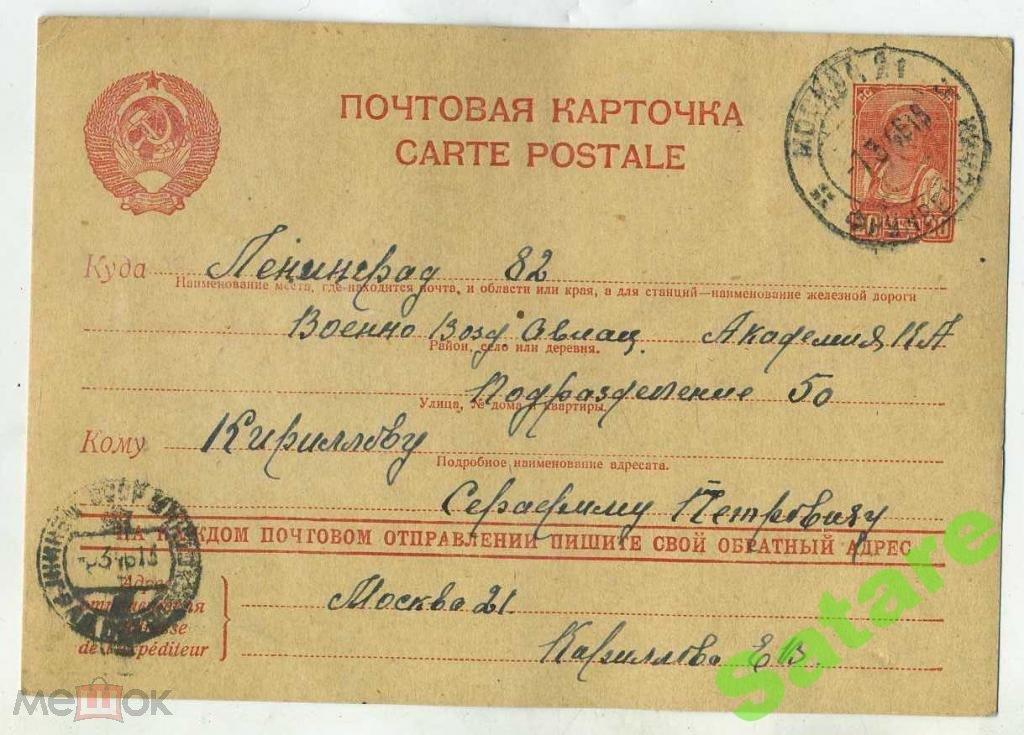 ПОЧТОВАЯ КАРТОЧКА
CARTE POSTALE
МОСКВА 21
20 20
Куда Ленинград 82
Наименование места, где находится почта, и области или края, а для станций—наименование железной дороги
Военно Возд Авиац. Академия КА
Район, село или деревня.
Подразделение 50
Улица, № дома и квартиры.
Кому Кириллову
Подробное наименование адресата.
Серафиму Петровичу
НА КАЖДОМ ПОЧТОВОМ ОТПРАВЛЕНИИ ПИШИТЕ СВОЙ ОБРАТНЫЙ АДРЕС
Москва 21
de l'expéditeur
Кириллова Е В.
Satare
мешок